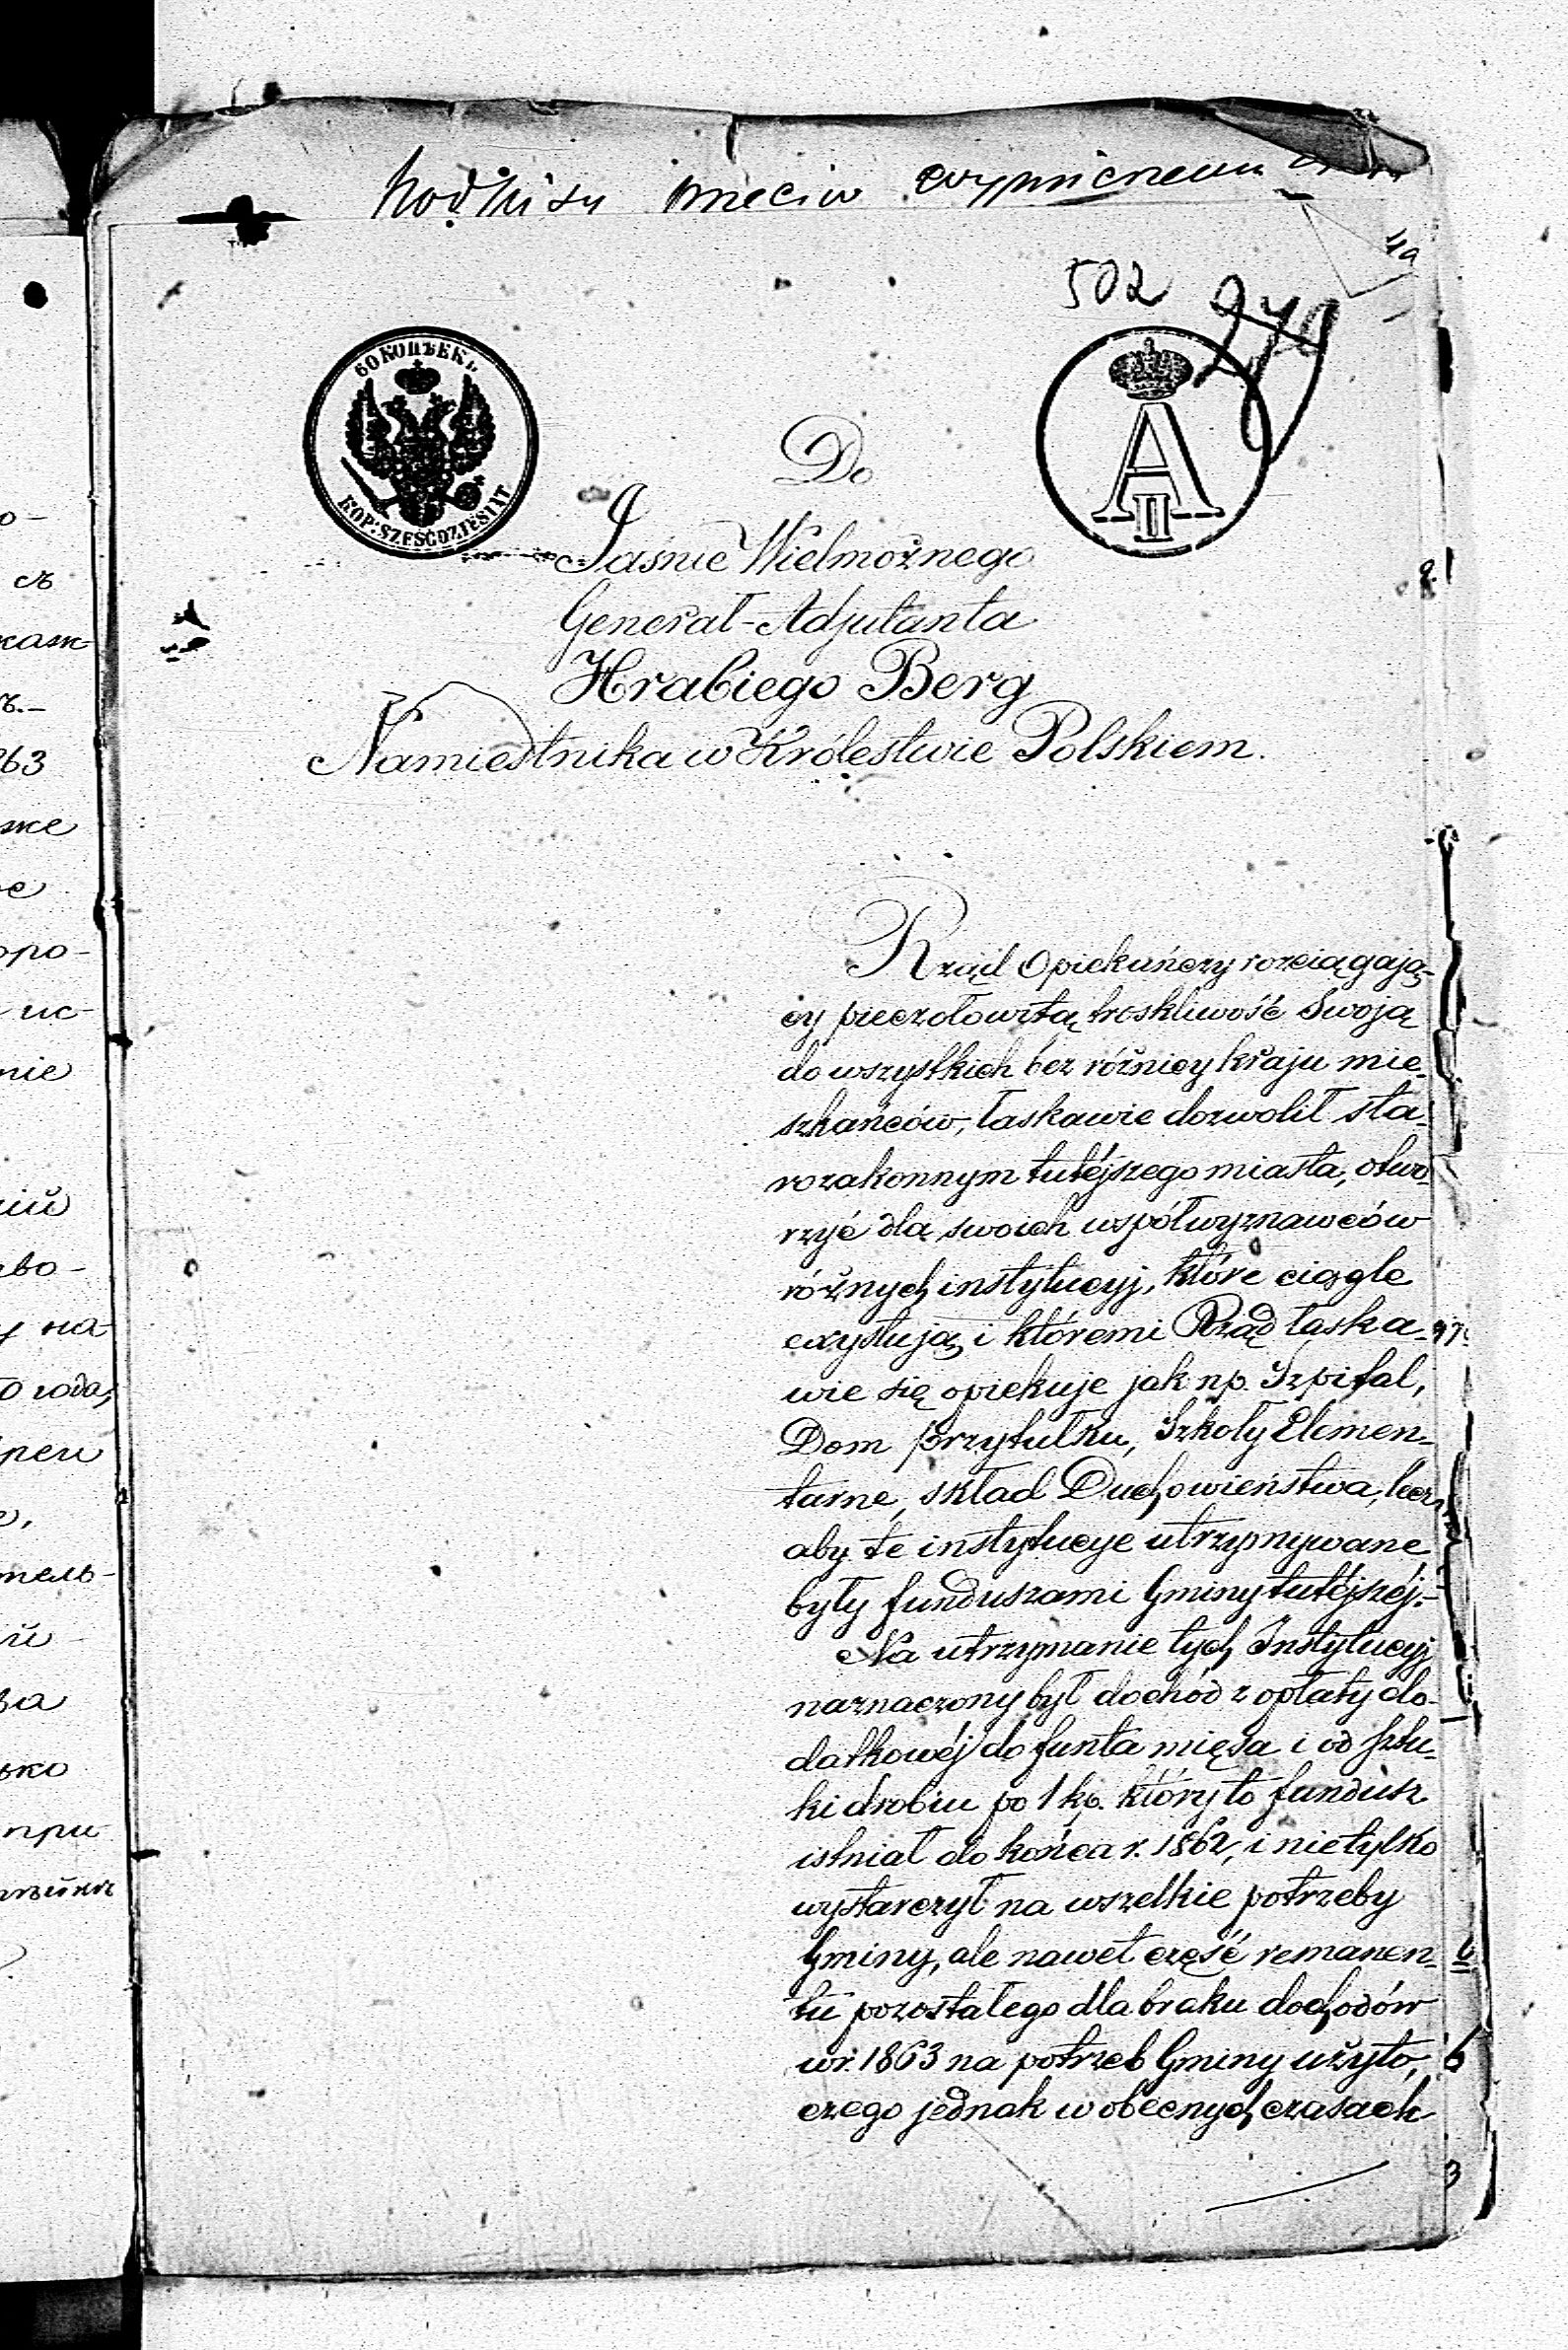 502
4a
60 КОПѢЕКЪ
КОР: SZEŚĆDZIESIĄT
A II
Do
Jaśnie Wielmożnego
Generał-Adjutanta
Hrabiego Berg
Namiestnika w Królestwie Polskiem.
Rząd Opiekuńczy rozciągają-
cy pieczołowitą troskliwość Swoją
do wszystkich bez różnicy kraju mie-
szkańców, łaskawie dozwolił sta-
rozakonnym tutéjszego miasta, otwo-
rzyć dla swoich współwyznawców
różnych instytucyj, które ciągle
exystują i któremi Rząd łaska-
wie się opiekuje jak np. Szpital,
Dom przytułku, Szkoły Elemen-
tarne, skład Duchowieństwa, lecz
aby te instytucye utrzymywane
były funduszami Gminy tutéjszéj.-
Na utrzymanie tych Instytucyj
naznaczony był dochód z opłaty do-
datkowéj do funta mięsa i od sztu-
ki drobiu po 1 kp. który to fundusz
istniał do końca r. 1862, i nietylko
wystarczył na wszelkie potrzeby
Gminy, ale nawet część remanen-
tu pozostałego dla braku dochodów
w r. 1863 na potrzeb Gminy użyto,
czego jednak w obecnych czasach
о-
съ
каж-
ъ.-
263
же
ое
оро-
ис-
ние
ній
ево-
у на-
0 года,
рей
е,
тель-
й
ва
ько
при